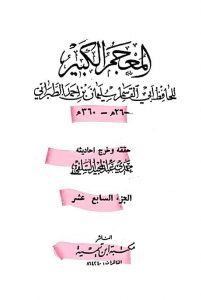 المعجم الكبير
للحافظ أبي القاسم سليمان بن أحمد الطبراني
٢٦٠ هـ - ٣٦٠ هـ
حققه وخرج أحاديثه
حمدي عبد المجيد السلفي
الجزء السابع عشر
الناشر
مكتبة ابن تيمية